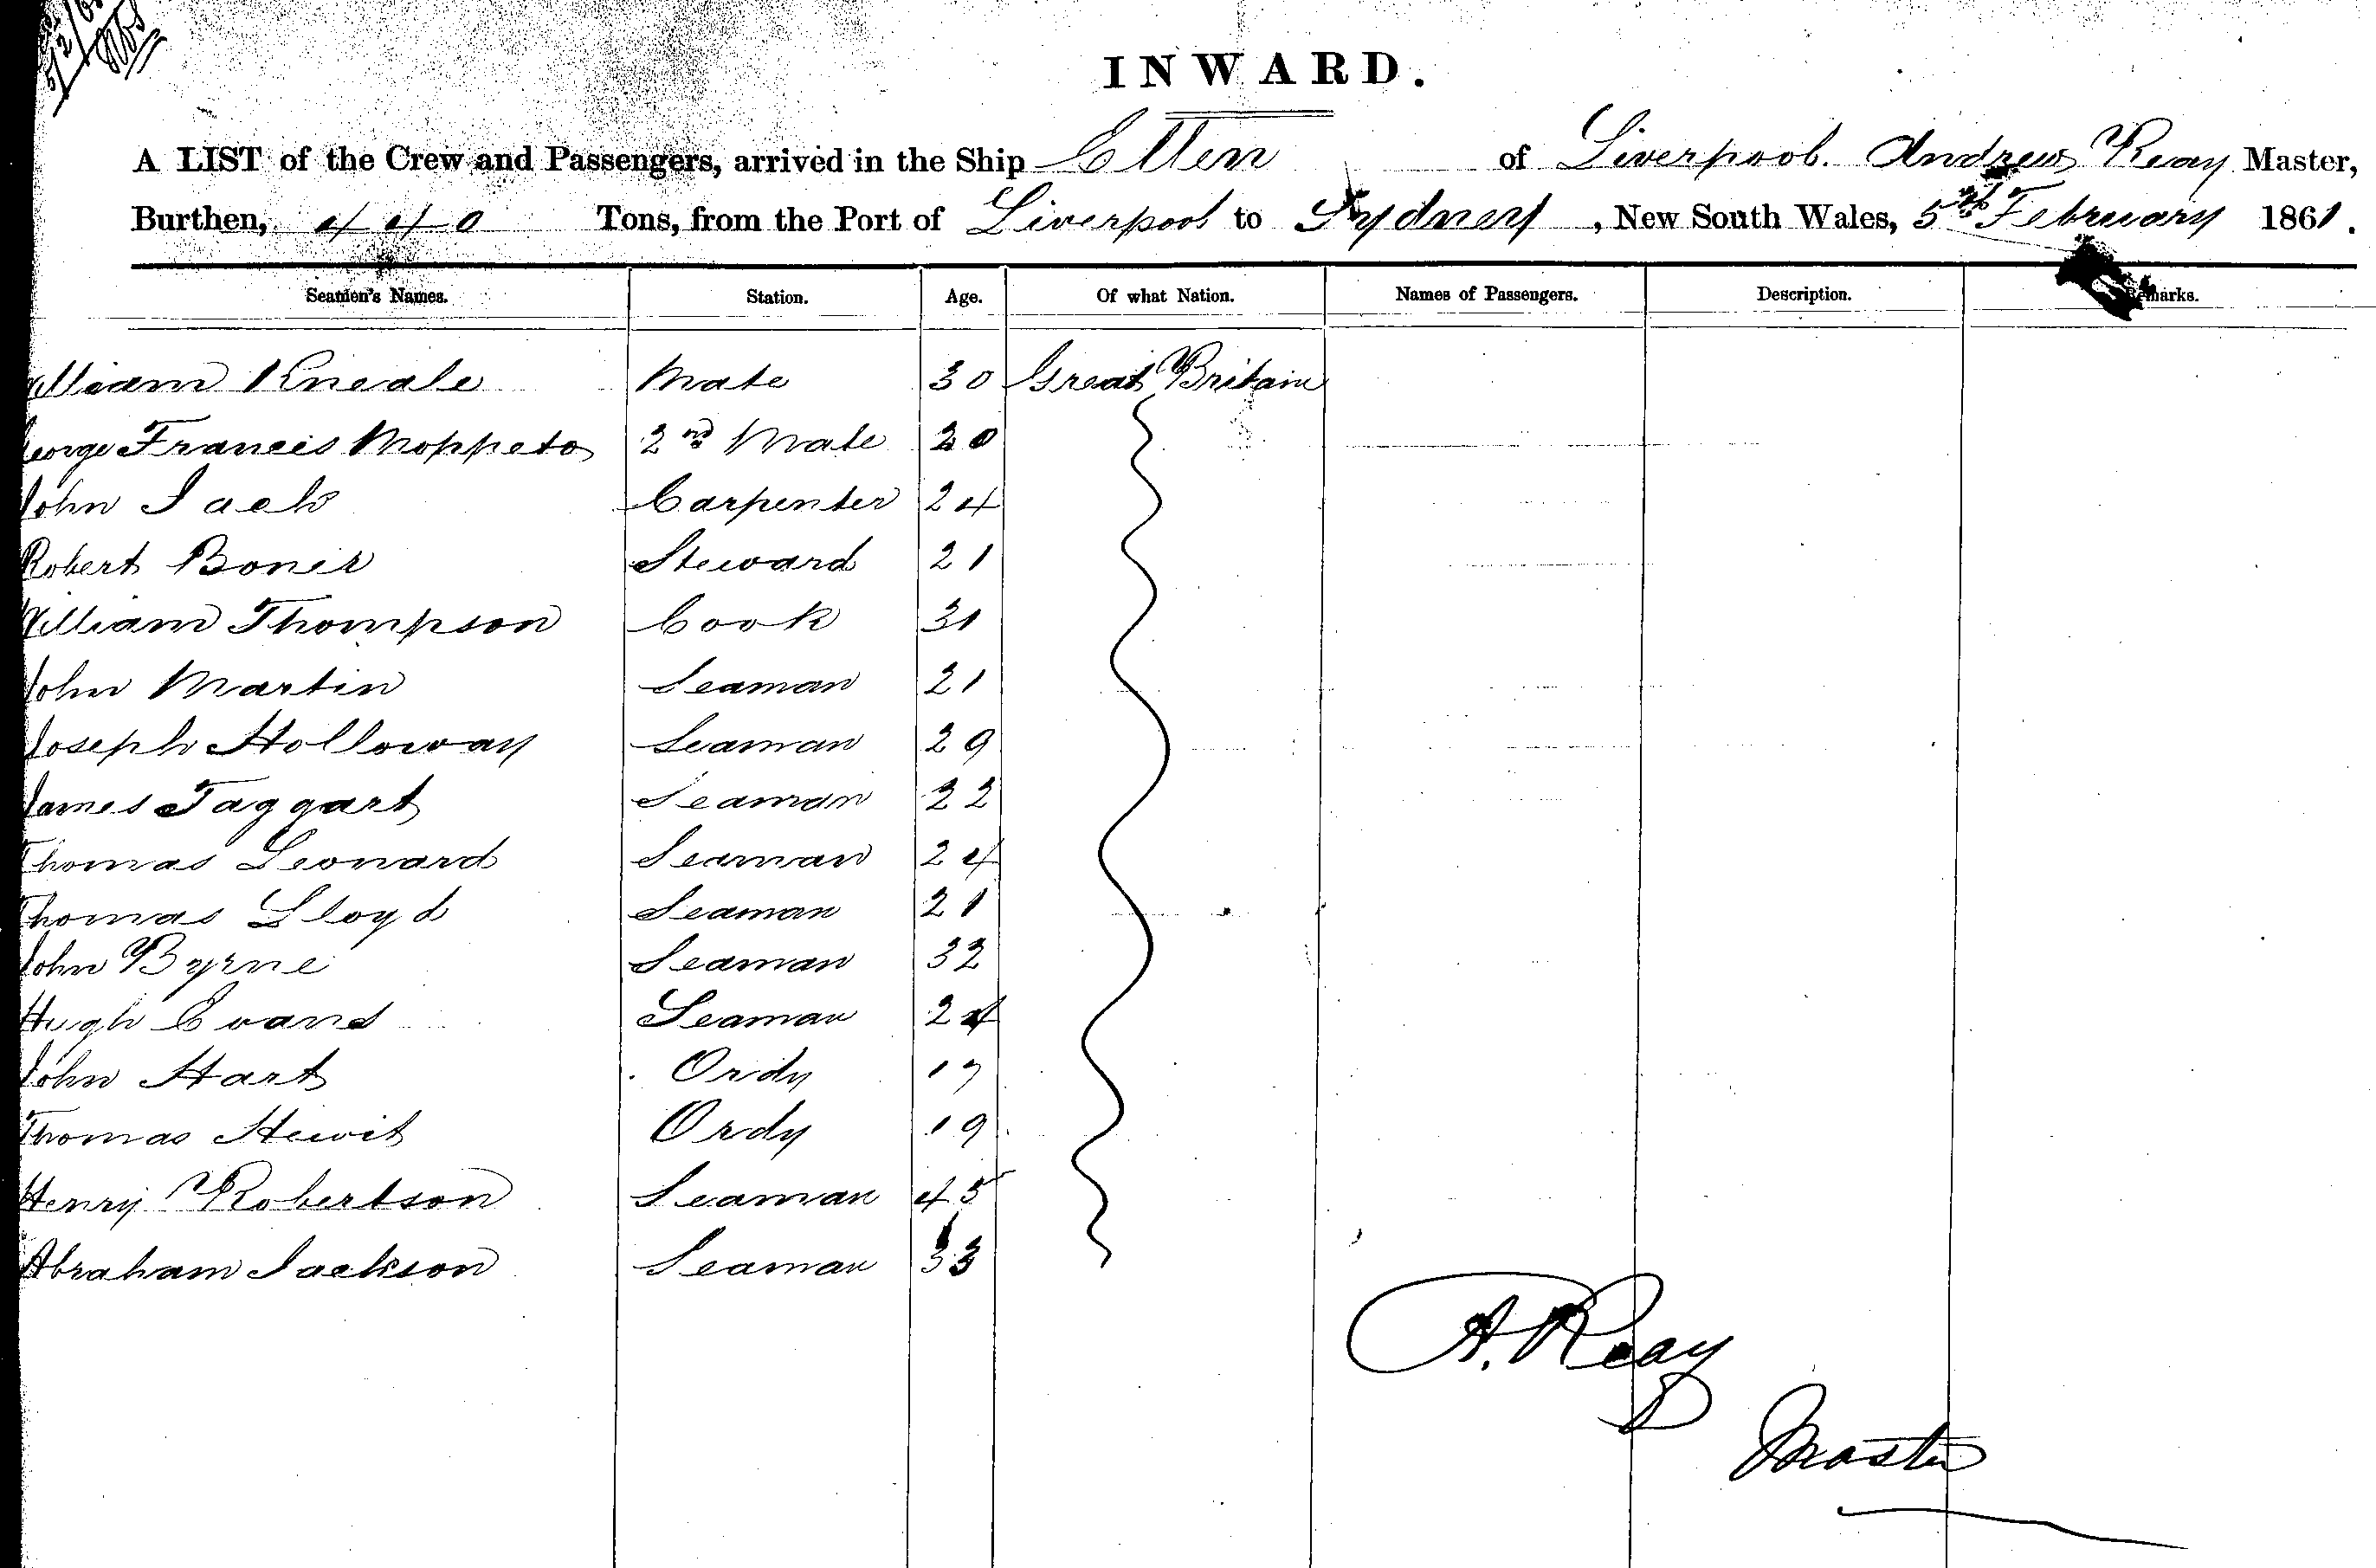 INWARD.
A LIST of the Crew and Passengers, arrived in the Ship Ellen of Liverpool. Andrew Reay Master,
Burthen, 440 Tons, from the Port of Liverpool to Sydney, New South Wales, 5th February 1861.
Seamen's Names. Station. Age. Of what Nation. Names of Passengers. Description. Remarks.
William Kneale Mate 30 Great Britain
George Francis Moppeto 2nd Mate 20
John Jack Carpenter 24
Robert Boner Steward 21
William Thompson Cook 31
John Martin Seaman 21
Joseph Holloway Seaman 29
James Taggart Seaman 22
Thomas Leonard Seaman 24
Thomas Lloyd Seaman 21
John Byrne Seaman 32
Hugh Evans Seaman 24
John Hart Ordy 17
Thomas Hewit Ordy 19
Henry Robertson Seaman 45
Abraham Jackson Seaman 33
A. Reay
Master